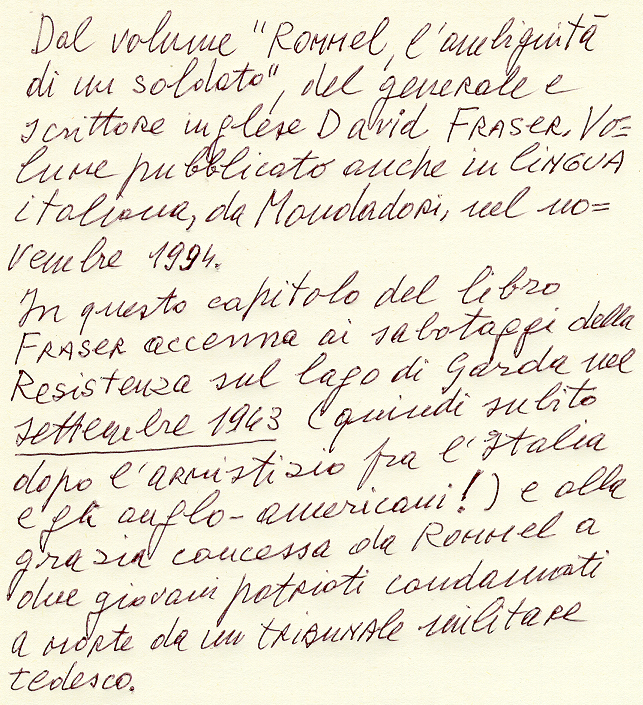 Dal volume "Rommel, l'ambiguità
di un soldato", del generale e
scrittore inglese David FRASER. Vo=
lume pubblicato anche in LINGUA
italiana, da Mondadori, nel no=
vembre 1994.
In questo capitolo del libro
FRASER accenna ai sabotaggi della
Resistenza sul lago di Garda nel
settembre 1943 (quindi subito
dopo l'armistizio fra l'Italia
e gli anglo-americani!) e alla
grazia concessa da Rommel a
due giovani patrioti condannati
a morte da un TRIBUNALE militare
tedesco.